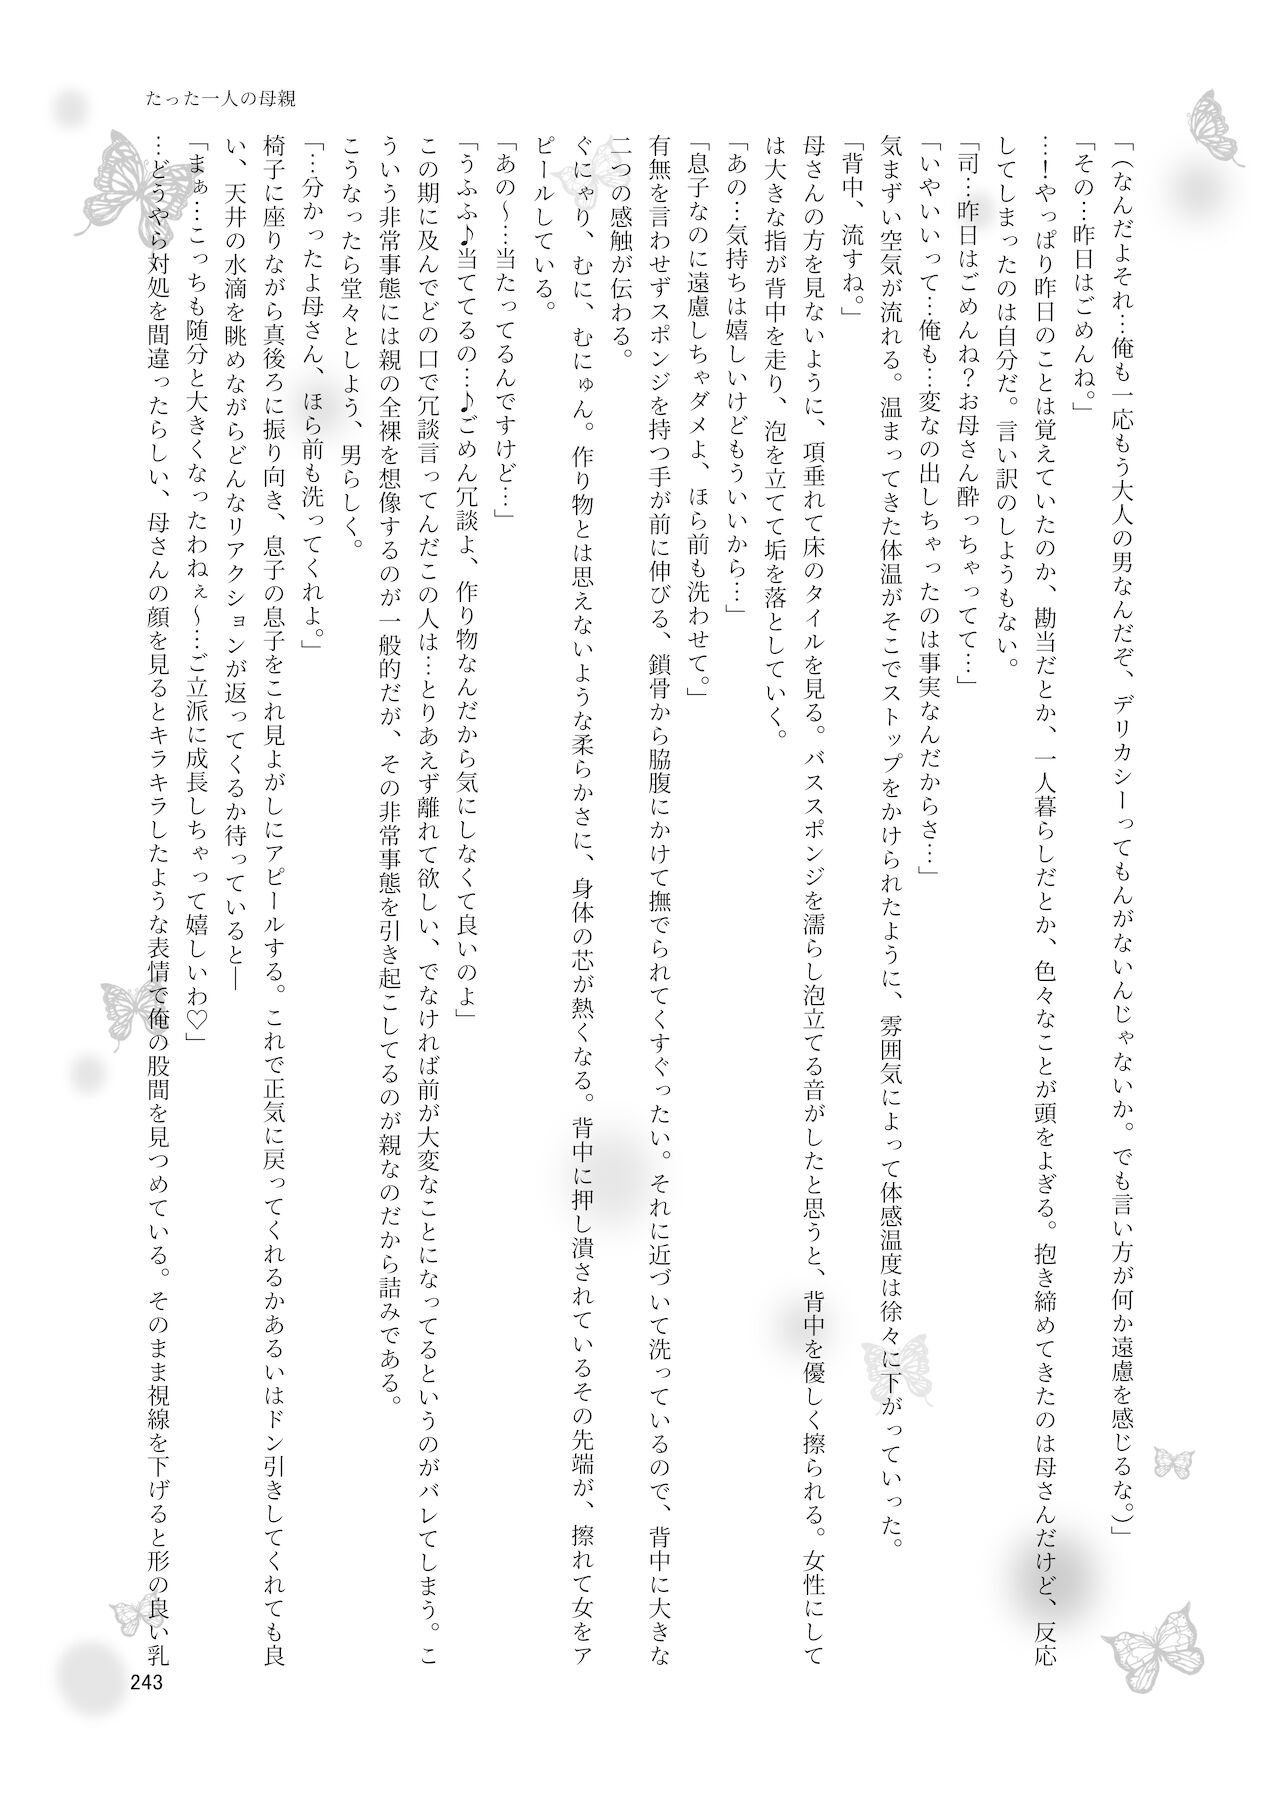 たった一人の母親
「（なんだよそれ…俺も一応もう大人の男なんだぞ、デリカシーってもんがないんじゃないか。でも言い方が何か遠慮を感じるな。）」
「その…昨日はごめんね。」
…！やっぱり昨日のことは覚えていたのか、勘当だとか、一人暮らしだとか、色々なことが頭をよぎる。抱き締めてきたのは母さんだけど、反応
してしまったのは自分だ。言い訳のしようもない。
「司…昨日はごめんね？お母さん酔っちゃってて…」
「いやいいって…俺も…変なの出しちゃったのは事実なんだからさ…」
気まずい空気が流れる。温まってきた体温がそこでストップをかけられたように、雰囲気によって体感温度は徐々に下がっていった。
「背中、流すね。」
母さんの方を見ないように、項垂れて床のタイルを見る。バススポンジを濡らし泡立てる音がしたと思うと、背中を優しく擦られる。女性にして
は大きな指が背中を走り、泡を立てて垢を落としていく。
「あの…気持ちは嬉しいけどもういいから…」
「息子なのに遠慮しちゃダメよ、ほら前も洗わせて。」
有無を言わせずスポンジを持つ手が前に伸びる、鎖骨から脇腹にかけて撫でられてくすぐったい。それに近づいて洗っているので、背中に大きな
二つの感触が伝わる。
ぐにゃり、むに、むにゅん。作り物とは思えないような柔らかさに、身体の芯が熱くなる。背中に押し潰されているその先端が、擦れて女をア
ピールしている。
「あの～…当たってるんですけど…」
「うふふ♪当ててるの…♪ごめん冗談よ、作り物なんだから気にしなくて良いのよ」
この期に及んでどの口で冗談言ってんだこの人は…とりあえず離れて欲しい、でなければ前が大変なことになってるというのがバレてしまう。こ
ういう非常事態には親の全裸を想像するのが一般的だが、その非常事態を引き起こしてるのが親なのだから詰みである。
こうなったら堂々としよう、男らしく。
「…分かったよ母さん、ほら前も洗ってくれよ。」
椅子に座りながら真後ろに振り向き、息子の息子をこれ見よがしにアピールする。これで正気に戻ってくれるかあるいはドン引きしてくれても良
い、天井の水滴を眺めながらどんなリアクションが返ってくるか待っていると―
「まぁ…こっちも随分と大きくなったわねぇ～…ご立派に成長しちゃって嬉しいわ♡」
…どうやら対処を間違ったらしい、母さんの顔を見るとキラキラしたような表情で俺の股間を見つめている。そのまま視線を下げると形の良い乳
243